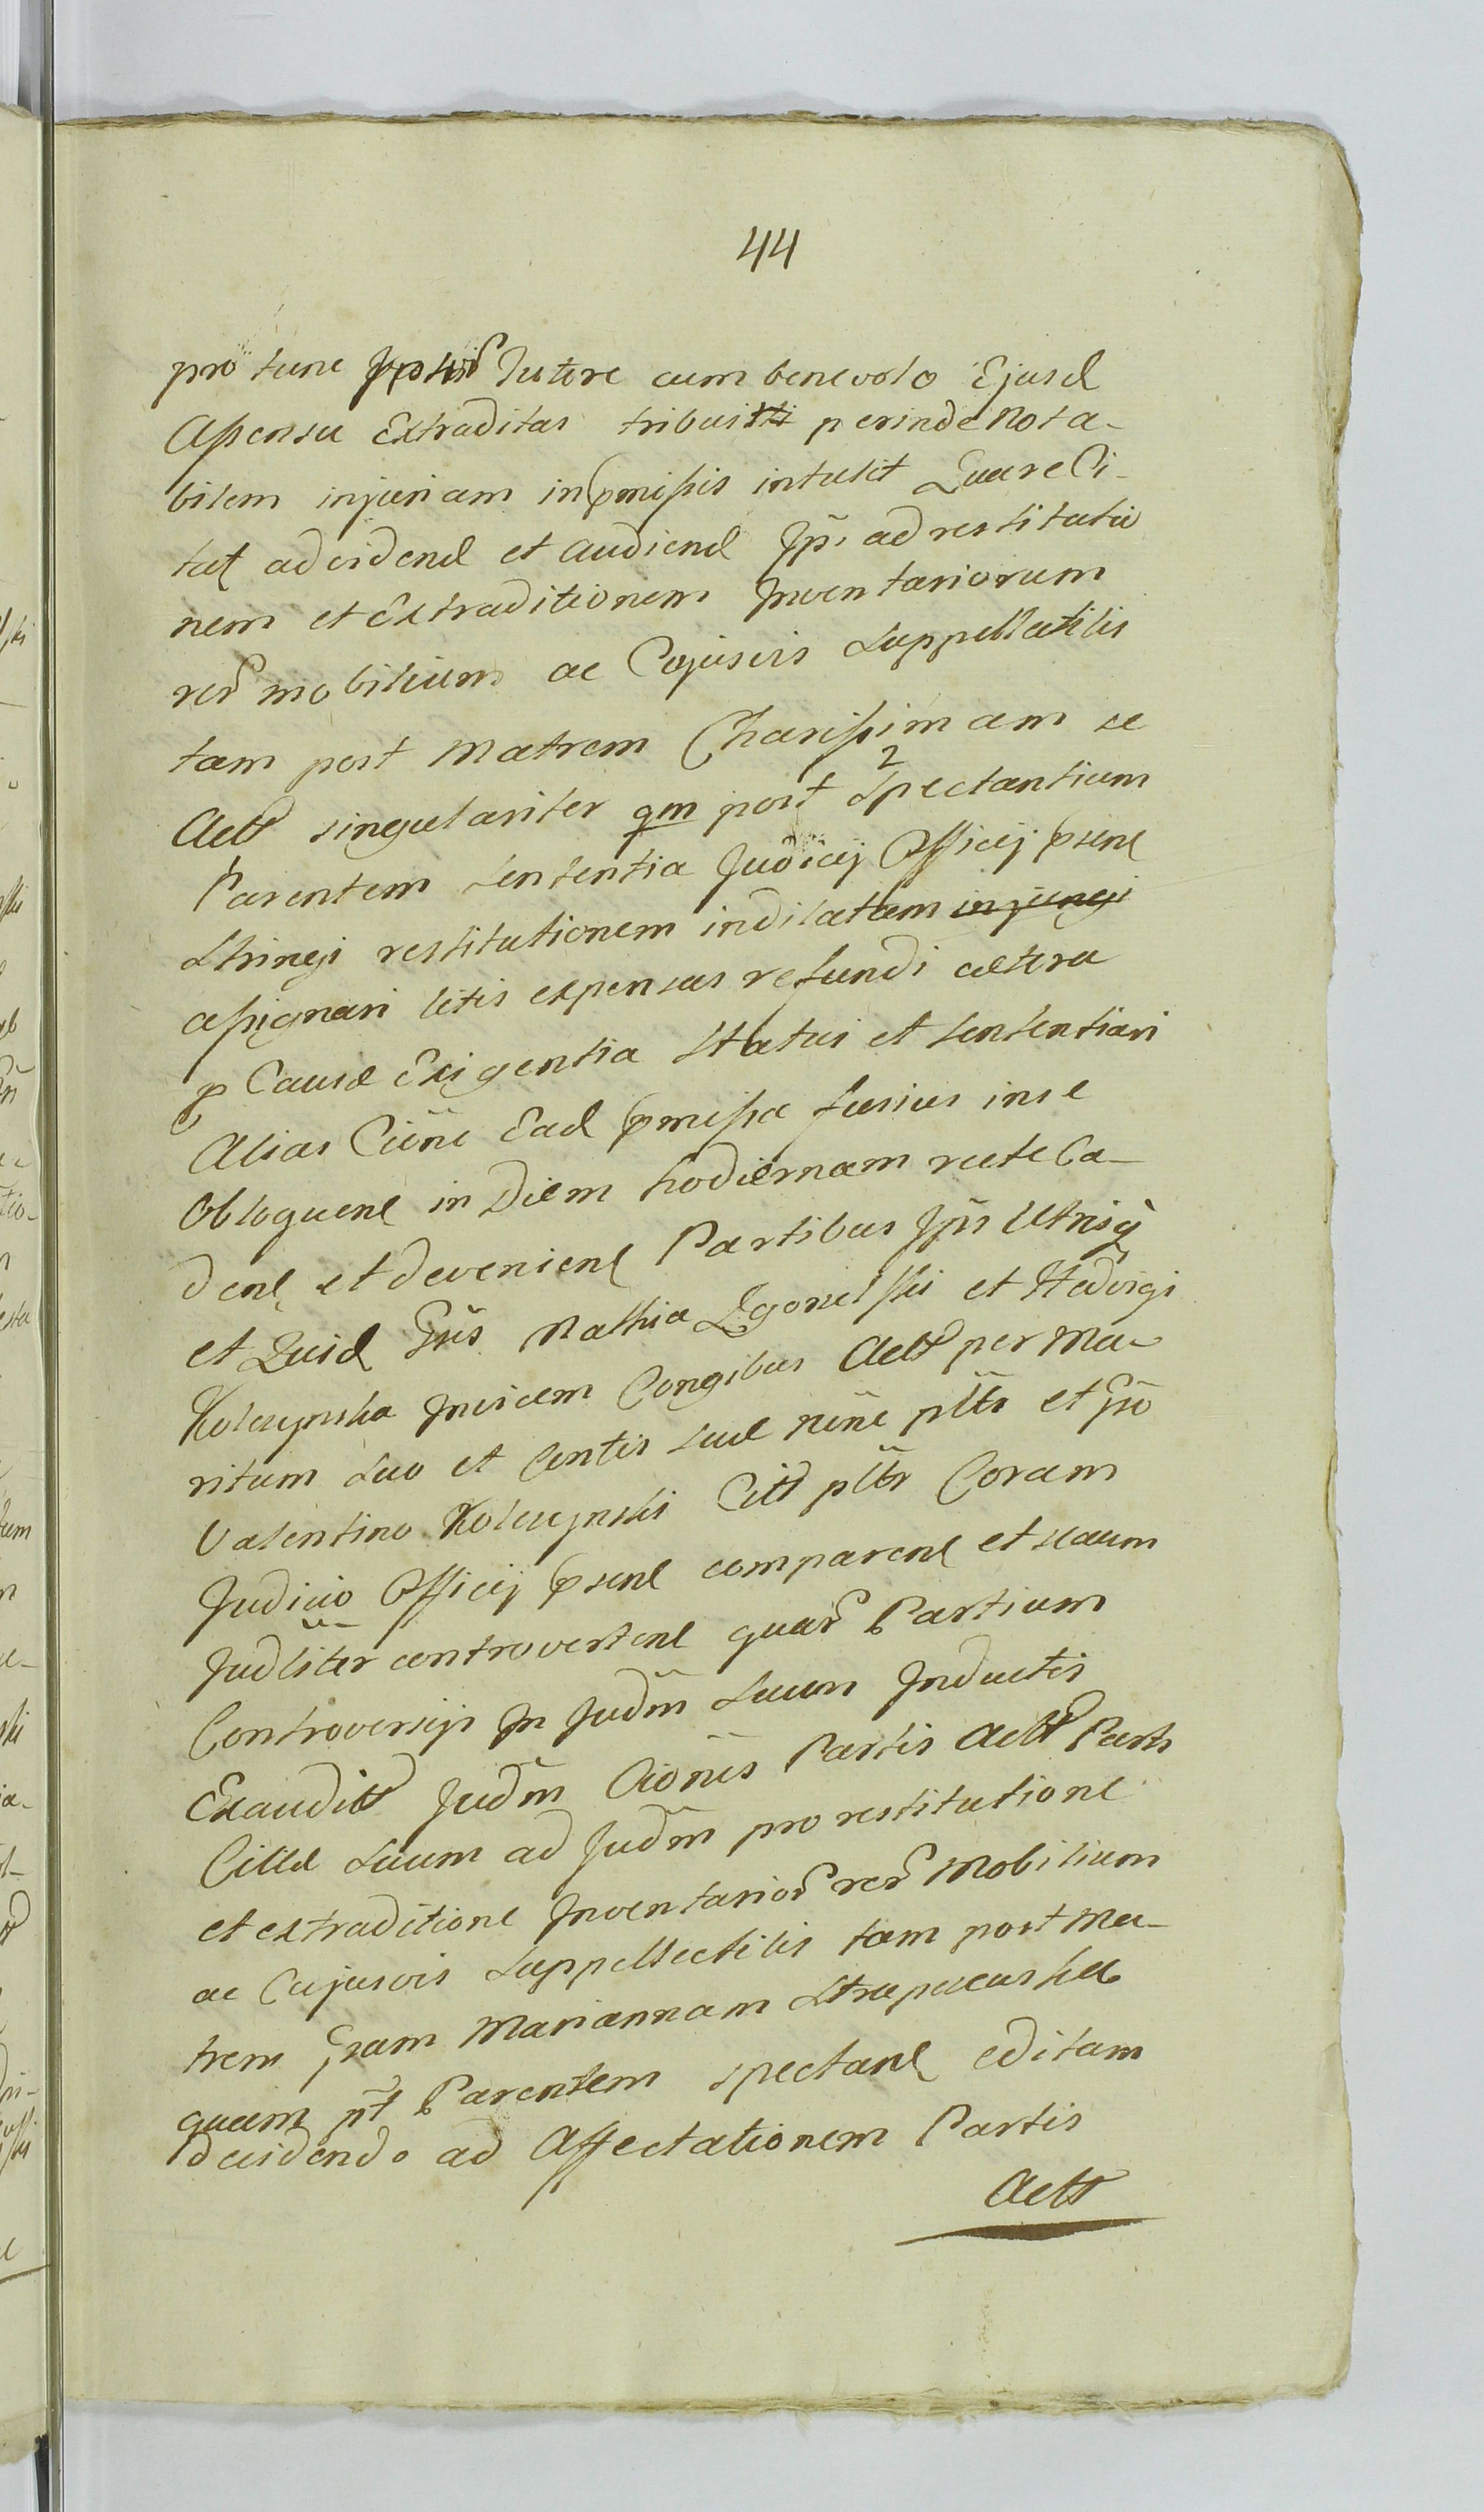 44
pro tunc Tutore cum benevolo Ejusd
Assensu Extraditas tribuitti perinde Nota-
bilem injuriam in pmissis intulit Quare Ci-
tat ad vidend et audiend Jp̃. ad restitutio
nem et Extraditionem Inventariorum
rer mobilium ac Cujusvis Suppellectilis
tam post Matrem Charissimam se
Actt singulariter qm post 2 Spectantium
Parentem sententia Judicij Officij psent
Stringi restitutionem indilatam injungi
assignari litis expensas refundi cætera
p Causæ Exigentia Statui et sententiari
Alias Citñe Ead pmissa fusius in se
Obloquent in Diem hodiernam recte Ca-
dent et devenient Partibus Jp̃is Utrisq
et Quid Gñs Mathia Zgorselski et Hedvigi
Kolczynska Invicem Congibus Actt per Ma-
ritum Suo et Contis suæ nõie pltr et Gño
Valentino Kolczynski Citt pltr Coram
Judicio Officij psent comparent et secum
Judliter controvertent quar Partium
Controversijs In Judm̃ Suum Inductis
Exauditt Judm̃ Cionẽs Partis Actt Parti
Cittæ Suum ad Judm̃ pro restitutione
et extraditione Inventarior rer Mobilium
ac Cujusvis Suppellectilis tam post Ma-
trem Gñam Mariannam
quam p̃t Parentem spectant editam
decidendo ad Affectationem Partis
Actt